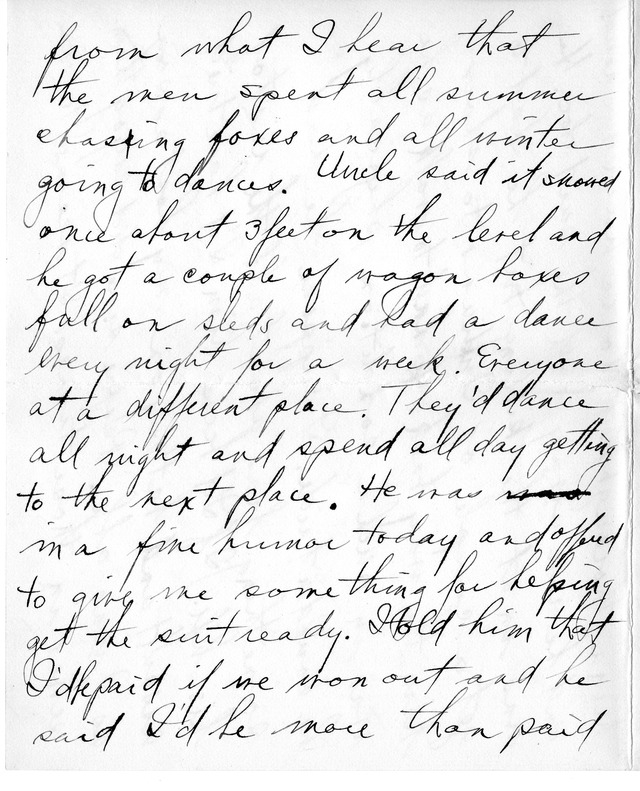 from what I hear that
the men spent all summer
chasing foxes and all winter
going to dances. Uncle said it snowed
once about 3 feet on the level and
he got a couple of wagon boxes
full on sleds and had a dance
every night for a week. Everyone
at a different place. They'd dance
all night and spend all day getting
to the next place. He was was
in a fine humor today and offered
to give me something for helping
get the suit ready. I told him that
I'd be paid if we won out and he
said I'd be more than paid